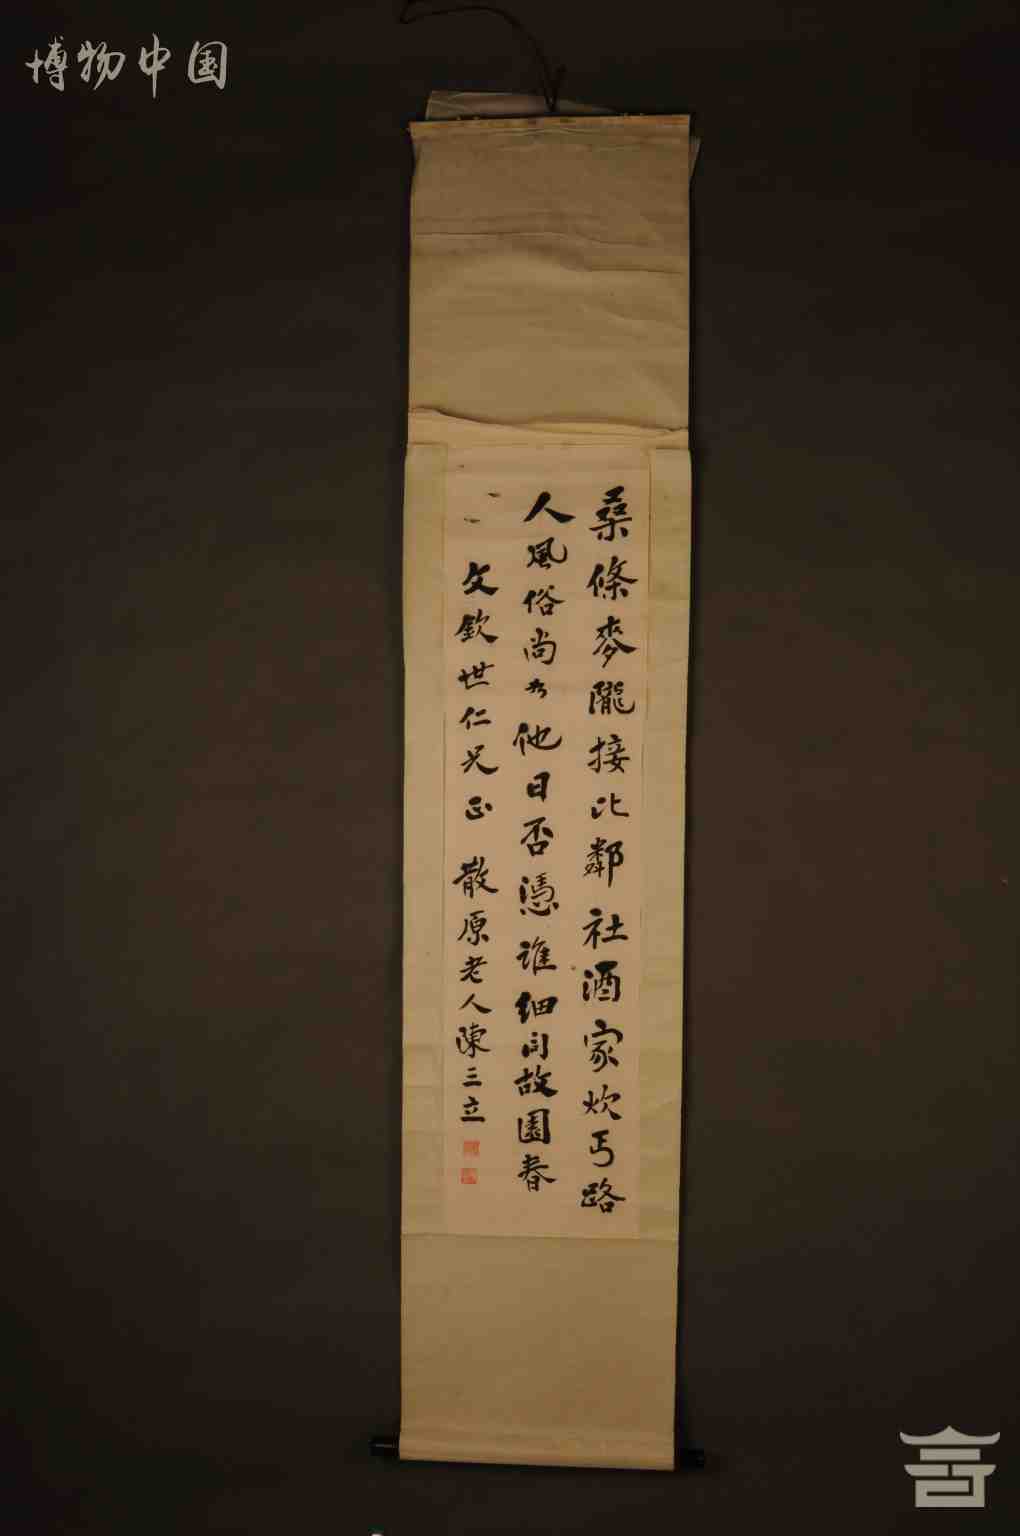 博物中国
桑條麥隴接比鄰社酒家炊丐路
人風俗尚如他日否憑誰細問故園春
文欽世仁兄正 散原老人陳三立